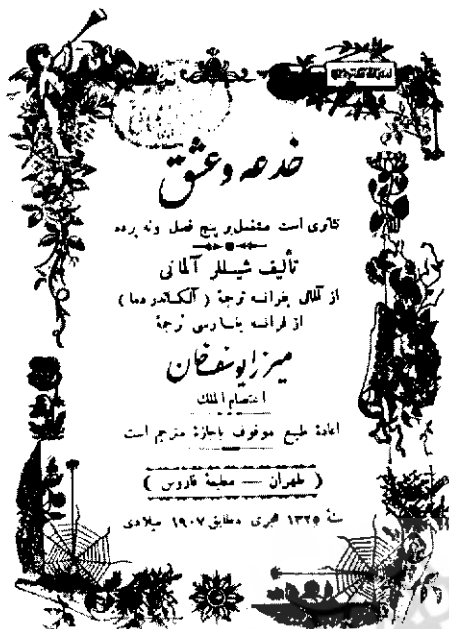 خدعه و عشق
تئاتری است مشتمل بر پنج فصل و نه پرده
تألیف شیللر آلمانی
از آلمانی بفرانسه ترجمهٔ ( آلکساندر دما )
از فرانسه بفارسی ترجمهٔ
میرزا یوسف خان
اعتصام الملك
اعادهٔ طبع موقوف باجازهٔ مترجم است
( طهران — مطبعهٔ فاروس )
سنهٔ ۱۳۲۵ هجری مطابق ۱۹۰۷ میلادی